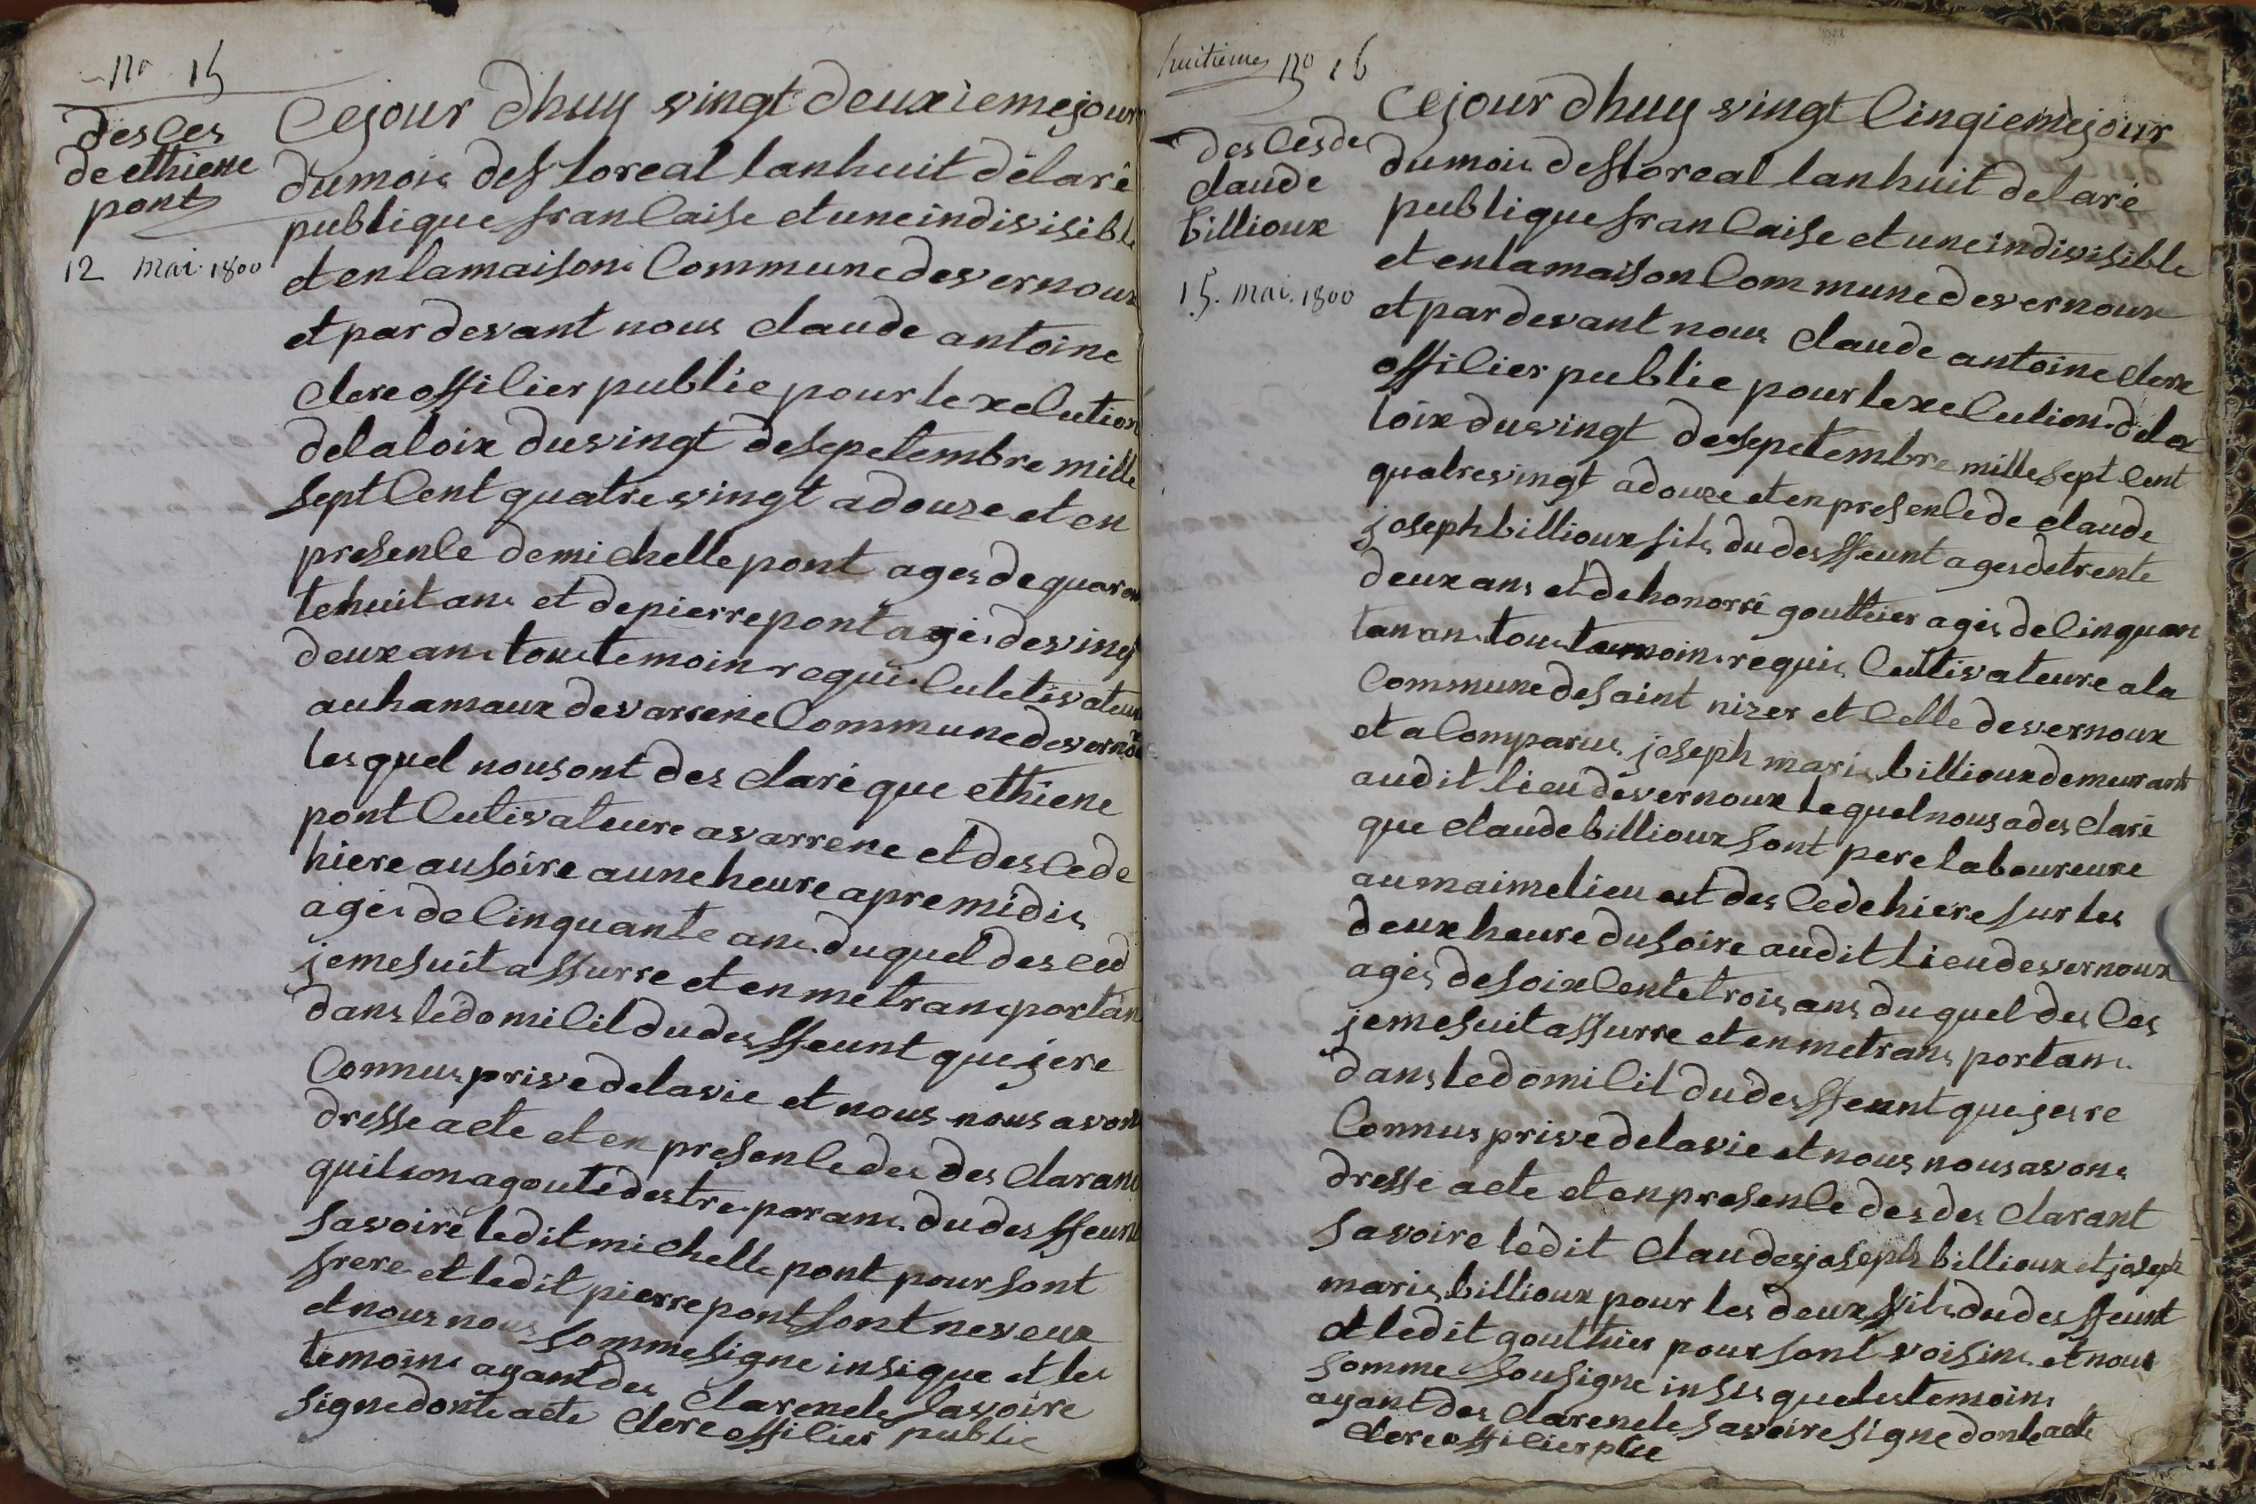 no 15
desCes
de ethiene
pont
12 mai 1800
Cejour Dhuy vingt deuxiemejour
dumois defloreal lanhuit délaré
publique franCaise etuneindivisible
etenlamaison Communedevernoux
etpardevant nous Claude antoine
Clere offiCier publie pour lexeCution
delaloix duvingt desepetembre mille
sept Cent quatrevingt adouze et en
presenCe demichellepont ages dequaran
tehuit ans et depierrepont agés devingt
deux ans tous temoin requis Culetivateur
auhamaux devarrene Communedevernoux
lesquel nousont des Claré que ethiene
pont Cutivateure avarrene et desCede
hiere ausoire auneheure apremidis
agés deCinquante ans duquel desCed
jemesuit assurre et enmetransportan
dans ledomiCil dudesffeunt quejere
Connus privedelavie et nous nous avons
dresse acte et en presenCedes des Clarans
quilsonagouté destre parans dudesffeunt
savoire ledit michelle pont pour sont
frere et ledit pierrepont sont neveux
et nous nous sommesigne insique et les
temoins ayant des Clarenele savoire
signedonte acte Clere offiCier publie
huitieme no 16
desCesde
Claude
billioux
15. mai. 1800
Cejour Dhuy vingt Cinqiemejour
dumois defloreal lanhuit delaré
publique franCaise etuneindivisible
et enlamaison Communedevernoux
et pardevant nous Claude antoine Clere
offiCier publie pour lexeCution dela
loix duvingt desepetembre mille sept Cent
quatrevingt adouze et enpresenCede Claude
joseph billioux fils dudesffeunt agesdetrente
deux ans et dehonorré gouttier agés deCinquan
tan ans tous temoins requis Cultivateure ala
Commune desaint nizer et Celle devernoux
et aComparus joseph maris billiouxdemeurant
audit lieu devernoux lequelnousades Claré
que Claudebillioux sont pere laboureure
aumaimelieu est desCedehiere sur les
deux heure dusoire audit lieudevernoux
agés desoixCentetrois ans duquel desCes
jemesuit assurre et enmetrans portans
dans ledomiCil dudesffeunt quejesre
Connus prive delavie et nous nous avons
dresse acte et enpresenCedesdes Clarant
savoire ledit Claudejoseph billioux et joseph
maris billioux pour les deux fils dudesffeunt
et ledit gouthier poursont voisins et nous
somme sousigne insis quelestemoins
ayantdes Clarenele savoire signedonteacte
Clere offiCier plie